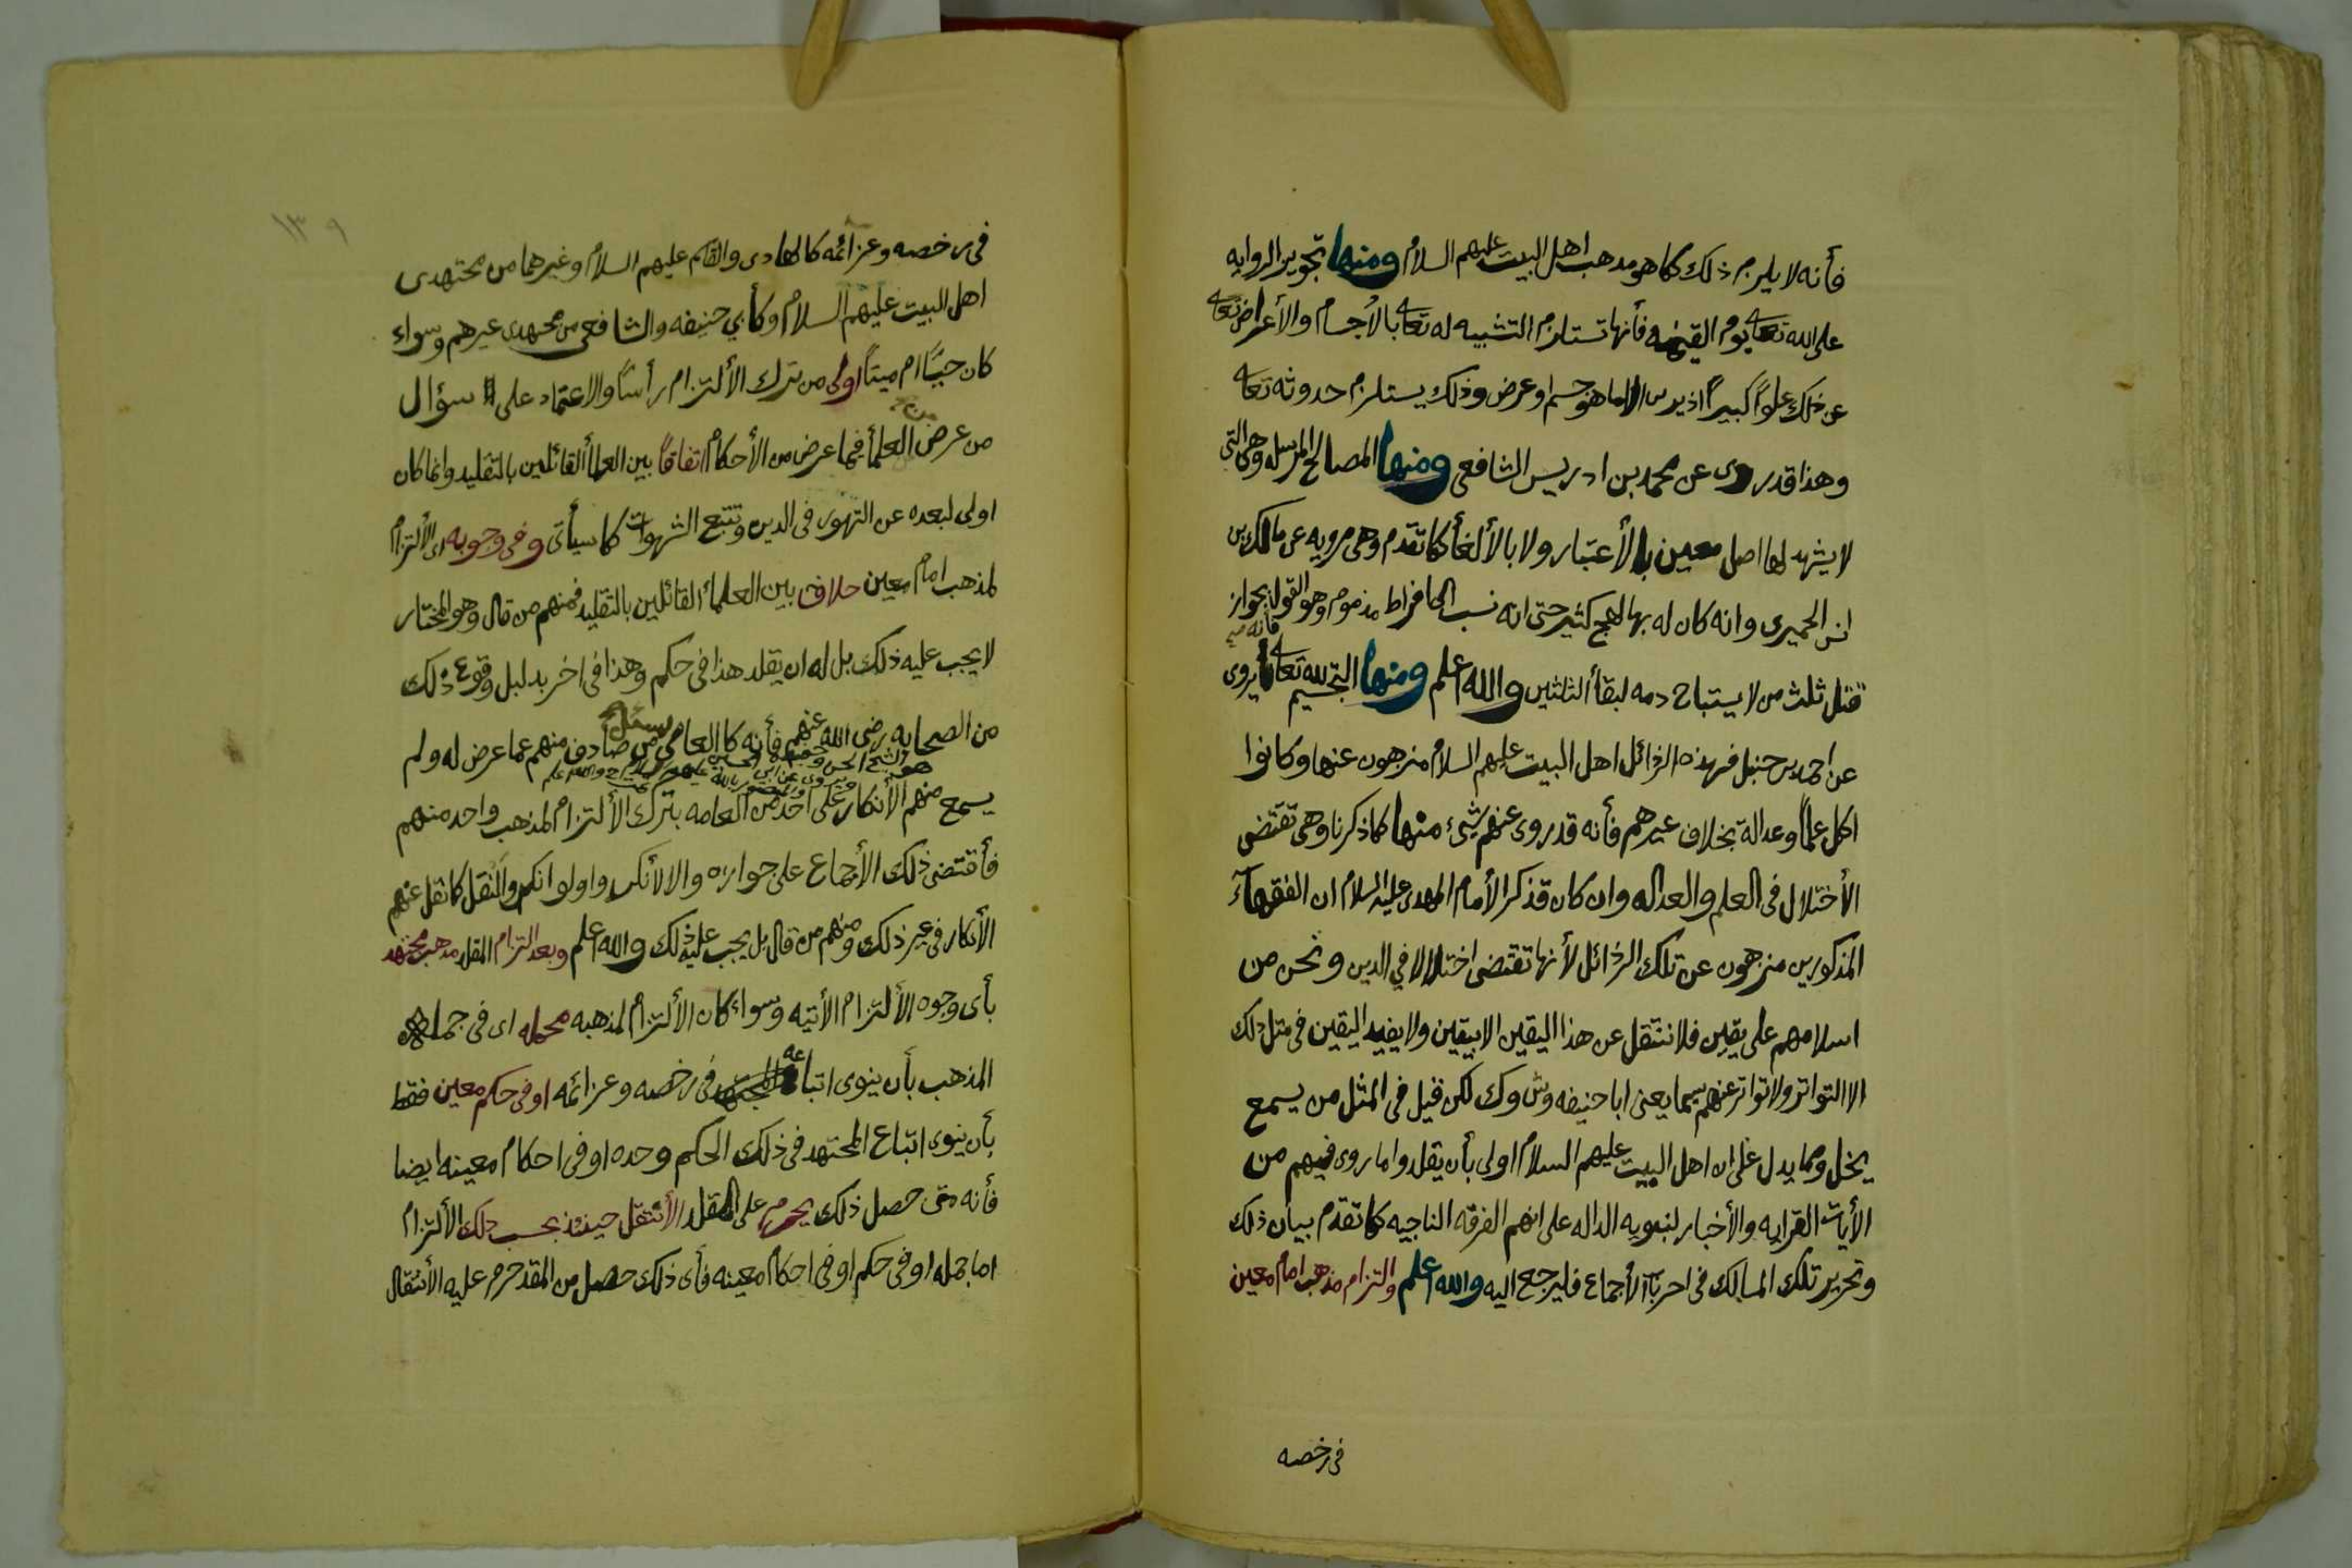 فأنه لا يلزم ذلك كما هو مدهب اهل البيت عليهم السلام ومنها تجويز الروايه
على الله تعالى يوم القيمه فأنها تستلزم التشبيه له تعالى بالأجسام والأعراض تعالى
عن ذلك علوًا كبيرًا اذ يرى الاما هو جسم او عرض وذلك يستلزم حدوثه تعالى
وهذا قد روى عن محمد بن ادريس الشافعى ومنها المصالح المرسله وهى التى
لا يشهد لها اصل معين بالأعتبار ولا بالألغأ كما تقدم وهى مرويه عن مالك بن
انس الحميرى وانه كان له بها لهج كثير حتى انه نسب الى افراط مذموم وهو القول بجواز
قتل ثلث من لا يستباح دمه لبقأ الثلثين والله اعلم ومنها التجسيم لله تعالى فأنه يروى
عن احمد بن حنبل فهذه الرذائل اهل البيت عليهم السلام منزهون عنها وكانوا
اكل علمًا وعدالة بخلاف غيرهم فأنه قد روى عنهم شئ منها كما ذكرنا وهى تقتضى
الأختلال فى العلم والعداله وان كان قد ذكر الأمام المهدى عليه السلام ان الفقهآء
المذكورين منزهون عن تلك الرذائل لأنها تقتضى اختلالا في الدين ونحن من
اسلامهم على يقين فلا ننتقل عن هذا اليقين الا بيقين ولا يفيد اليقين فى مثل ذلك
الا التواتر ولا تواتر عنهم سيما يعنى ابا حنيفه وش وك لكن قيل فى المثل من يسمع
يخل ومما يدل على ان اهل البيت عليهم السلام اولى بأن يقلدوا ما روى فيهم من
الأيات القرانيه والأخبار لنبويه الداله على انهم الفرقه الناجيه كما تقدم بيان ذلك
وتحرير تلك المسالك فى اخر باب الأجماع فليرجع اليه والله اعلم والتزام مذهب امام معين
فى رخصه
١٣٩
فى رخصه وعزائمه كالهادى والقاسم عليهم السلام وغيرهما من مجتهدى
اهل البيت عليهم السلام وكأبي حنيفه والشافعى من مجتهدى غيرهم وسواء
كان حيًّا ام ميتًا اولى من ترك الألتزام رأسًا والاعتماد على سؤال
من عرض من العلمأ فيما عرض من الأحكام اتفاقًا بين العلمأ القائلين بالتقليد وانما كان
اولى لبعده عن التهور فى الدين وتتبع الشهوات كما سيأتى وفى وجوبه اى الألتزام
لمذهب امام معين خلاف بين العلمأ القائلين بالتقليد فمنهم من قال وهو المختار
لا يجب عليه ذلك بل له ان يقلد هذا فى حكم وهذا فى اخر بدليل وقوع ذلك
من الصحابه رضى الله عنهم فأنه كا العامي يسئل من صادف منهم عما عرض له ولم
يسمع منهم الأنكار على احد من العامه بترك الألتزام لمذهب واحد منهم
فأقتضى ذلك الأجماع على جوازه والا لأنكروا ولو انكروا لنقل كما نقل عنهم
الأنكار فى غير ذلك ومنهم من قال بل يجب عليه ذلك والله اعلم وبعد التزام المقلد مدهب مجتهد
بأى وجوه الألتزام الأتيه وسواء كان الألتزام لمذهبه محمله اى فى جمله
المذهب بأن ينوى اتباعه فى رخصه وعزائمه او فى حكم معين فقط
بأن ينوى اتباع المجتهد فى ذلك الحكم وحده او فى احكام معينه ايضا
فأنه متى حصل ذلك يحرم على المقلد الأنتقل حينئذ بحسب ذلك الألتزام
اما جمله او فى حكم او فى احكام معينه فأى ذلك حصل من المقد حرم عليه الأنتقال